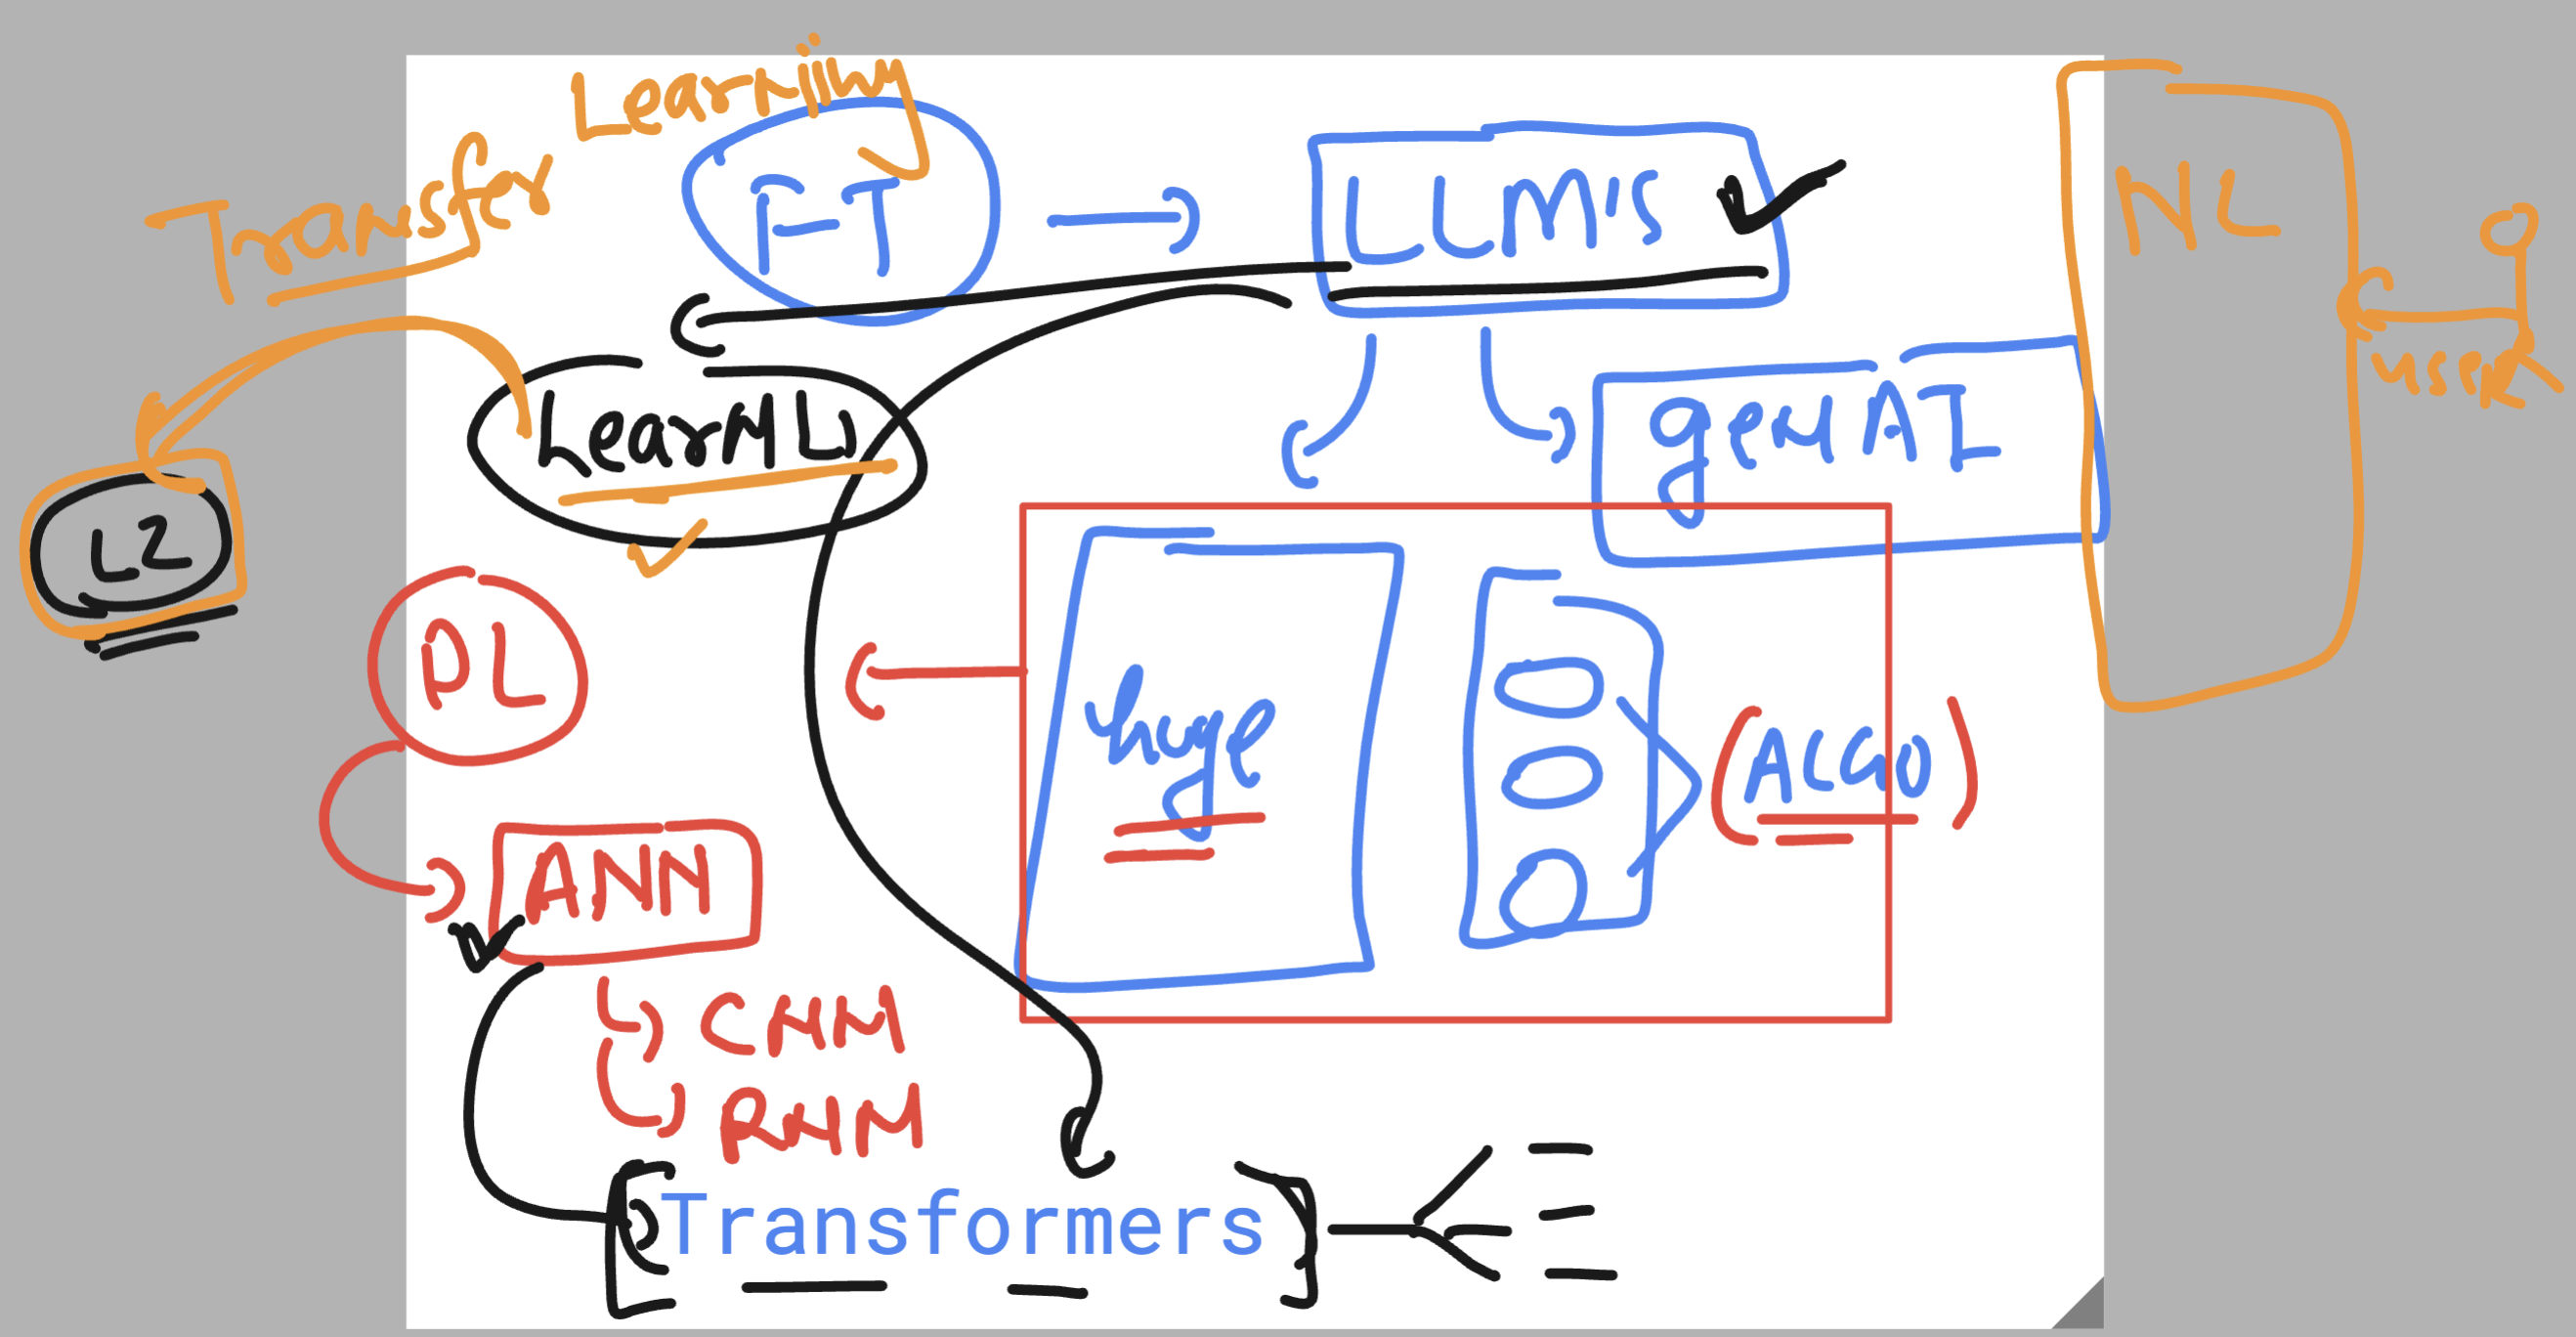 Transfer Learning
FT
LLM'S
NL
user
Learn
genAI
L2
DL
huge
(ALGO)
ANN
CNN
RNN
Transformers